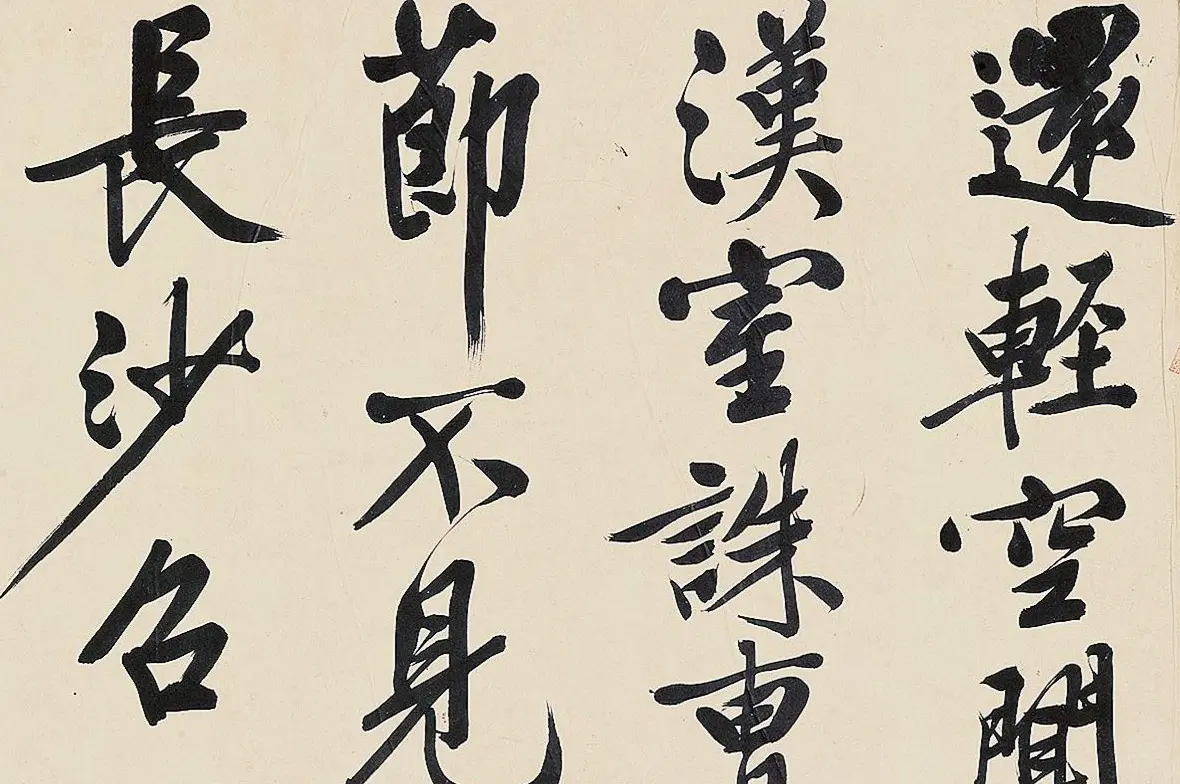 還輕空聞
漢室誅曹
節不見
長沙召